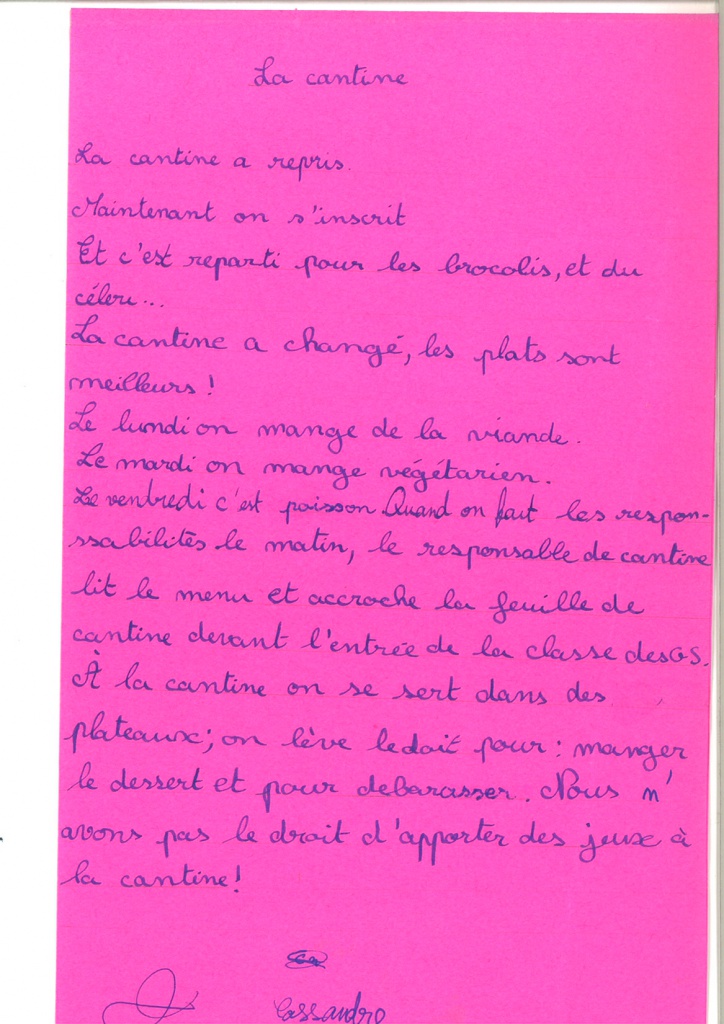 La cantine
La cantine a repris.
Maintenant on s'inscrit
Et c'est reparti pour les brocolis, et du
céleri...
La cantine a changé, les plats sont
meilleurs !
Le lundi on mange de la viande.
Le mardi on mange végétarien.
Le ventredi c'est poisson Quand on fait les respon-
ssabilités le matin, le responsable de cantine
lit le menu et accroche la feuille de
cantine devant l'entrée de la classe des GS.
À la cantine on se sert dans des
plateaux; on lève le doit pour : manger
le dessert et pour debarasser. Nous n'
avons pas le droit d'apporter des jeux à
la cantine!
Cassandro